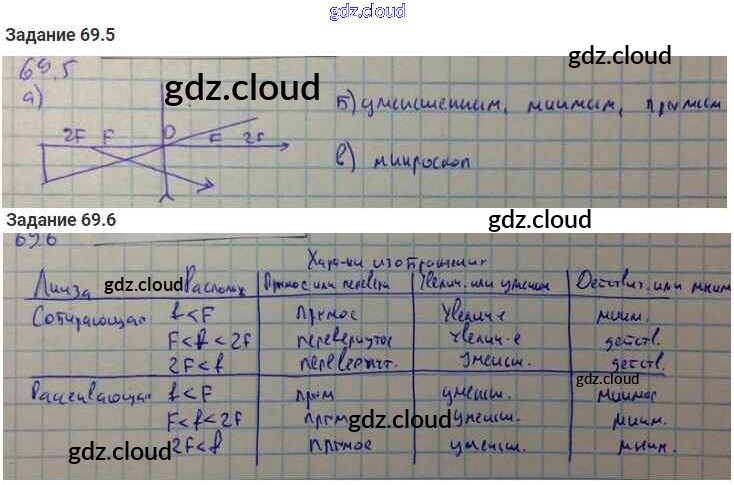 gdz.cloud
Задание 69.5
gdz.cloud
69.5
gdz.cloud
а)
Б) уменьшенным, мнимым, прямым
2F F O F 2F
в) микроскоп
Задание 69.6
gdz.cloud
69.6
Хара-ки изображения
Линза gdz.cloud Располож Прямое или перевёрн Увелич. или уменьш Действит. или мним
Собирающая f<F прямое Увелич-е мним.
F<f<2F перевернутое Увелич-е действ.
gdz.cloud
2F<f перевернут. Уменьш. действ.
gdz.cloud
Рассеивающая f<F прям уменьш. мнимое
F<f<2F прям уменьш. мним.
gdz.cloud
2F<f прямое уменьш. мним.
gdz.cloud
gdz.cloud